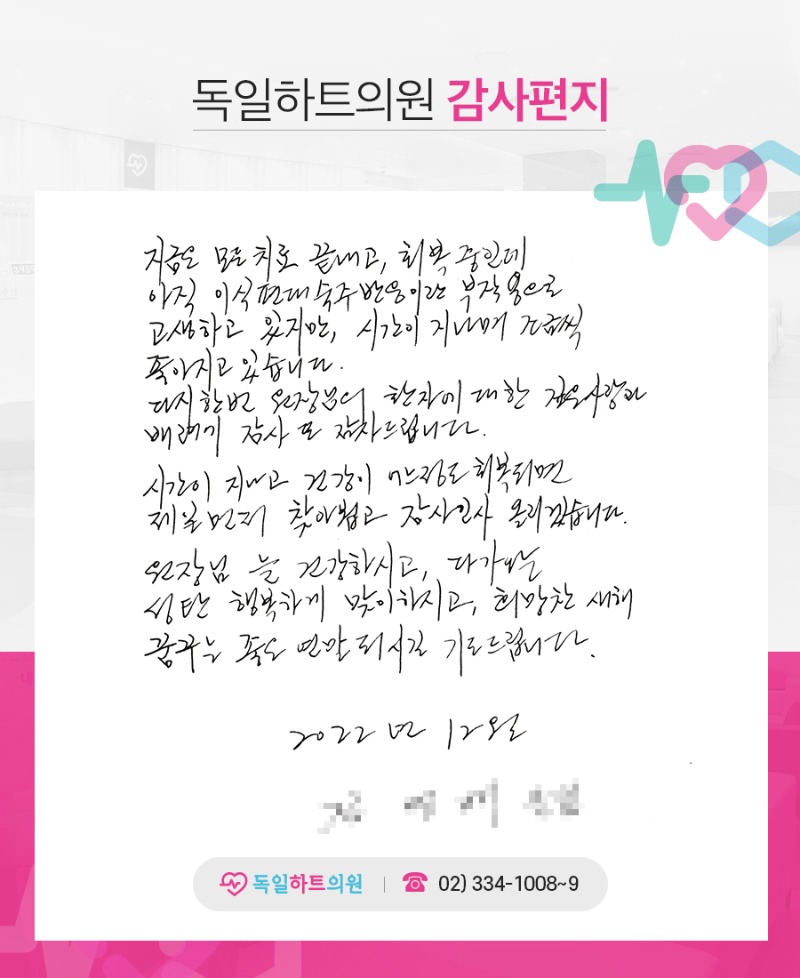 독일하트의원 감사편지
지금은 모든 치료 끝내고, 회복 중인데
아직 이식편대숙주반응이란 부작용으로
고생하고 있지만, 시간이 지나며 조금씩
좋아지고 있습니다.
다시한번 원장님의 환자에 대한 깊은사랑과
배려에 감사 또 감사드립니다.
시간이 지나고 건강이 어느정도 회복되면
제일먼저 찾아뵙고 감사인사 올리겠습니다.
원장님 늘 건강하시고, 다가오는
성탄 행복하게 맞이하시고, 희망찬 새해
꿈꾸는 좋은 연말 되시길 기도드립니다.
2022년 12월
독일하트의원 | 02) 334-1008~9